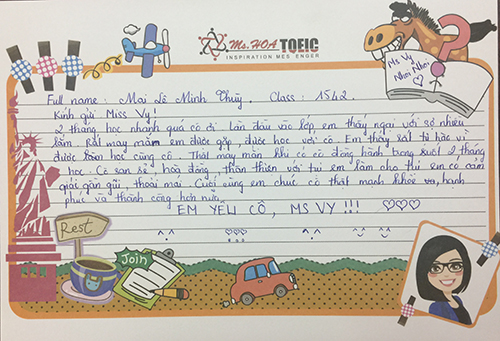 Ms.HOA TOEIC
INSPIRATION MESSENGER
Full name : Mai Lê Minh Thùy. Class : 1542.
Kính gửi Miss Vy!
2 tháng học nhanh quá cô ơi. Lần đầu vào lớp, em thấy ngại với sợ nhiều
lắm. Rất may mắn em được gặp, được học với cô. Em thấy rất tự hào vì
được làm học cùng cô. Thật may mắn khi có cô đồng hành trong suốt 2 tháng
học. Cô san sẻ, hòa đồng, thân thiện với tụi em làm cho tụi em có cảm
giác gần gũi, thoải mái. Cuối cùng em chúc cô thật mạnh khỏe và hạnh
phúc và thành công hơn nữa.
EM YÊU CÔ, MS VY !!! ♡♡♡
Ms Vy
Nhoi Nhoi
♡
Rest
Join